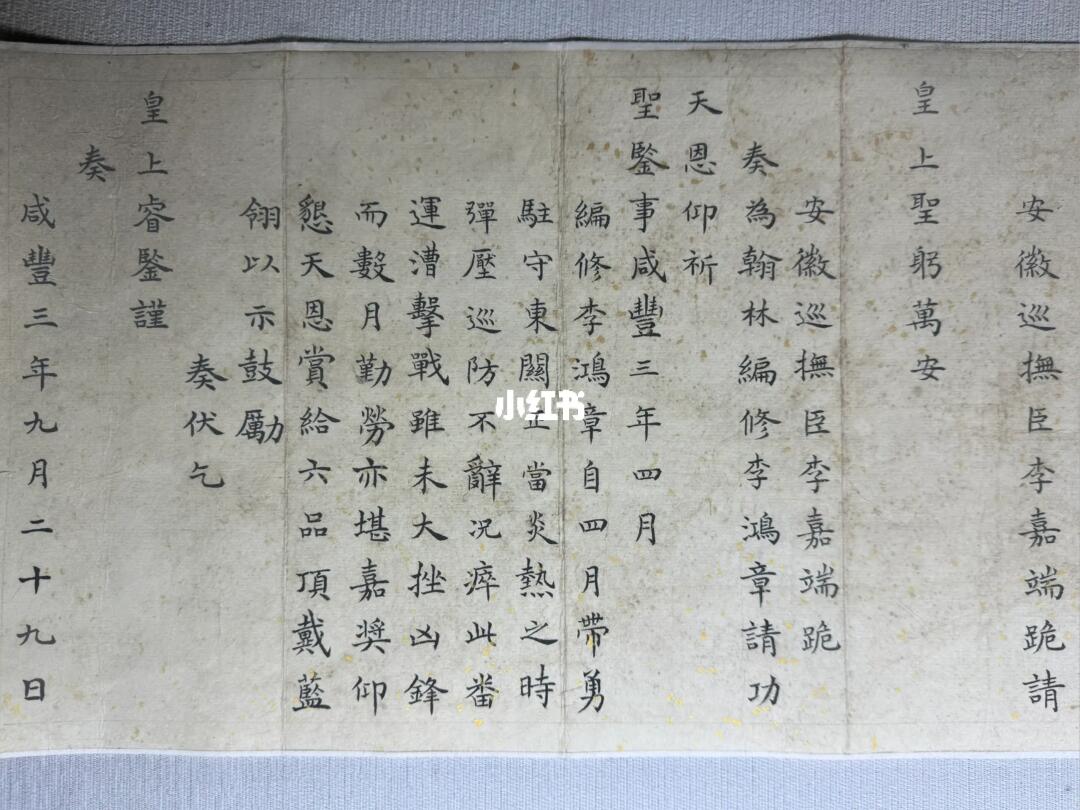 安徽巡撫臣李嘉端跪請
皇上聖躬萬安
安徽巡撫臣李嘉端跪
奏為翰林編修李鴻章請功
天恩仰祈
聖鍳事咸豐三年四月
編修李鴻章自四月帶勇
駐守東關正當炎熱之時
彈壓巡防不辭況瘁此番
運漕擊戰雖未大挫凶鋒
而數月勤勞亦堪嘉奬仰
懇天恩賞給六品頂戴藍
翎以示鼓勵
奏伏乞
皇上睿鍳謹
奏
咸豐三年九月二十九日
小红书